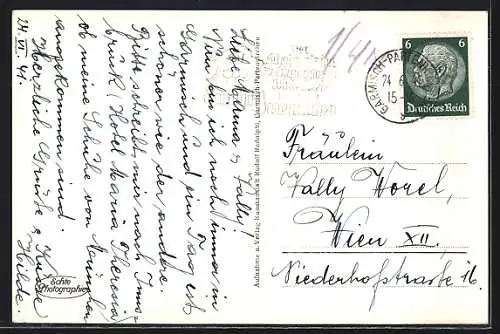 24. VI. 41.
Liebe Mama u. Vally!
Nun bin ich noch immer in
Garmisch und ein Tag ist
schöner wie der andere.
Bitte schreibt mir nach Inns-
bruck (Hotel Maria Theresia)
ob meine Schuhe von München
angekommen sind.
Herzliche Grüße u. Küsse
Hilde.
Echte
Photographie
Aufnahme u. Verlag Kunstanstalt Rudolf Rudolphi, Garmisch-Partenkirchen
GARMISCH-PARTENK
24.6.
15-
6 6
Deutsches Reich
Fräulein
Vally Worel,
Wien XII.,
Niederhofstrasse 16.